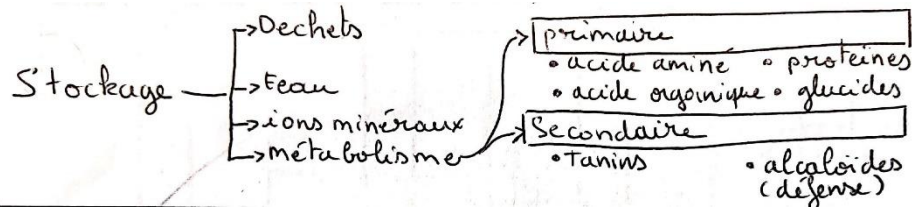 Stockage
→Dechets
→Eeau
→ions minéraux
→métabolisme
primaire
• acide aminé • proteines
• acide organique • glucides
Secondaire
• Tanins • alcaloïdes
(défense)